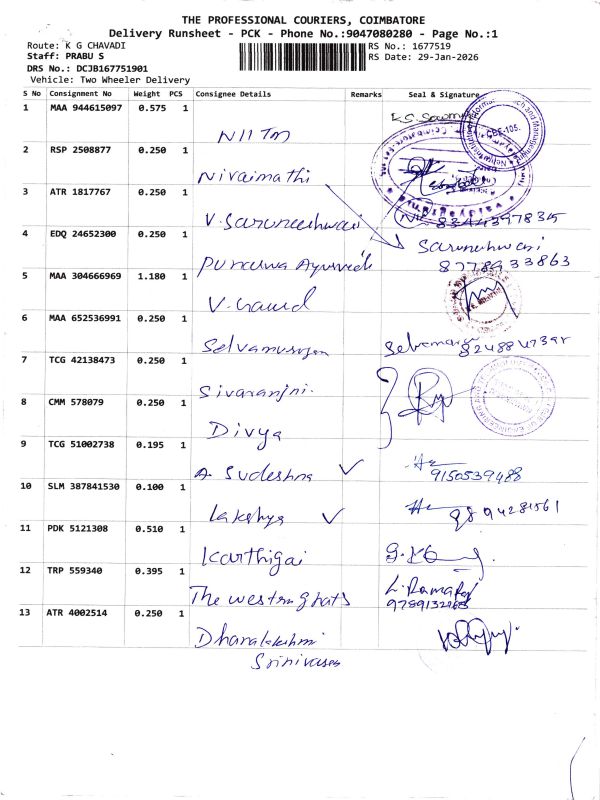 THE PROFESSIONAL COURIERS, COIMBATORE
Delivery Runsheet - PCK - Phone No.:9047080280 - Page No.:1
Route: K G CHAVADI
Staff: PRABU S
DRS No.: DCJB167751901
Vehicle: Two Wheeler Delivery
RS No.: 1677519
RS Date: 29-Jan-2026
S No Consignment No Weight PCS Consignee Details Remarks Seal & Signature
1 MAA 944615097 0.575 1 NIITM
2 RSP 2508877 0.250 1 Nivaimathi
3 ATR 1817767 0.250 1 V. Saruneeshwari
4 EDQ 24652300 0.250 1 Saruneshwari
8778933863
5 MAA 304666969 1.180 1
6 MAA 652536991 0.250 1 Selvamurugan
7 TCG 42138473 0.250 1 Sivaranjni.
8 CMM 578079 0.250 1 Divya
9 TCG 51002738 0.195 1 A. Sudeshna ✓ 9150539488
10 SLM 387841530 0.100 1 Lakshya ✓
11 PDK 5121308 0.510 1 Karthigai
12 TRP 559340 0.395 1 The western ghats L. Ramaraj
13 ATR 4002514 0.250 1 Dharalakshmi
Srinivasan